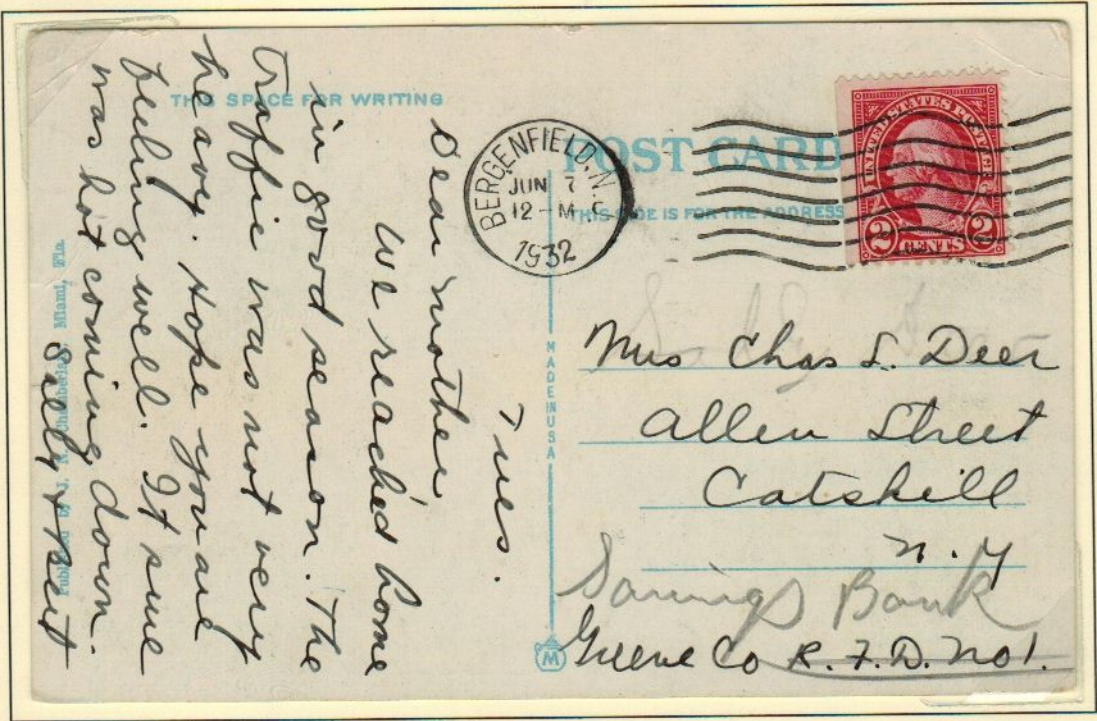 THIS SPACE FOR WRITING
Tues.
Dear Mother,
We reached home
in good season. The
traffic was not very
heavy. Hope you are
feeling well. It sure
was hot coming down.
Sally & Bert
Published by J. N. Chamberlain, Miami, Fla.
MADE IN USA
M
BERGENFIELD, N.
JUN 7
12 - M
1932
POST CARD
THIS SIDE IS FOR THE ADDRESS
UNITED STATES POSTAGE
2 CENTS 2
Mrs Chas L. Deer
Allen Street
Catskill
N. Y
Savings Bank
Greene Co R. F. D. No 1.